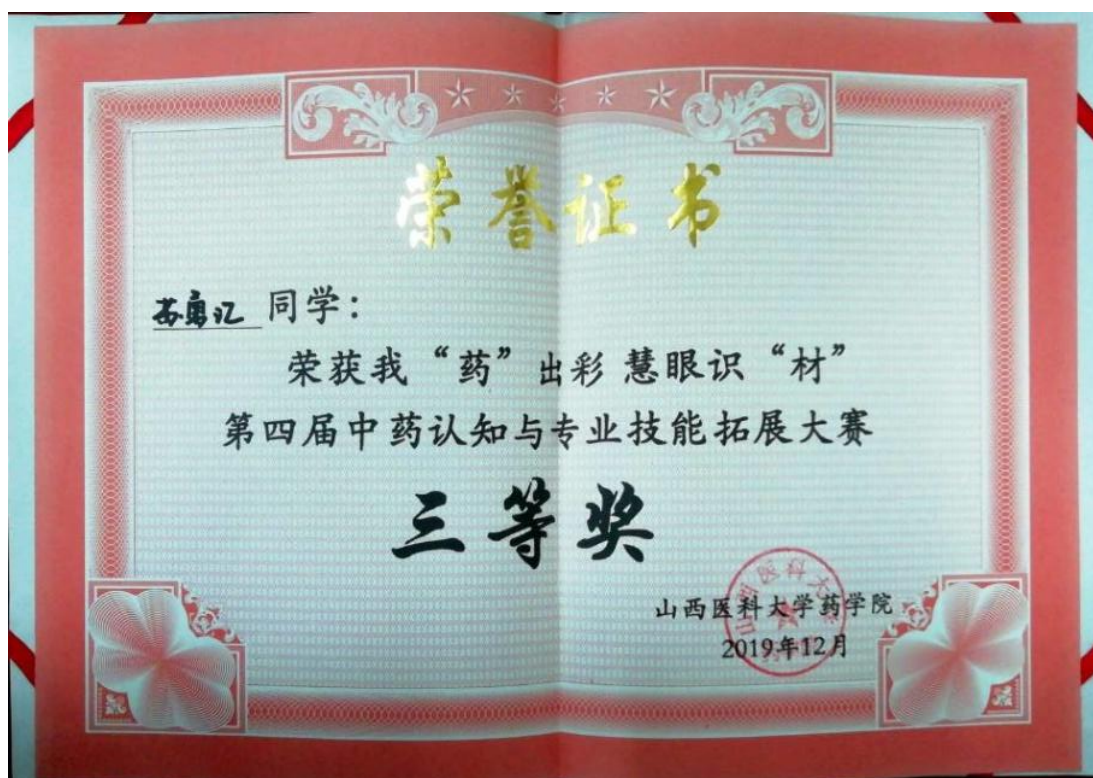 荣誉证书
苏勇汇 同学：
荣获我“药”出彩 慧眼识“材”
第四届中药认知与专业技能拓展大赛
三等奖
山西医科大学药学院
2019年12月